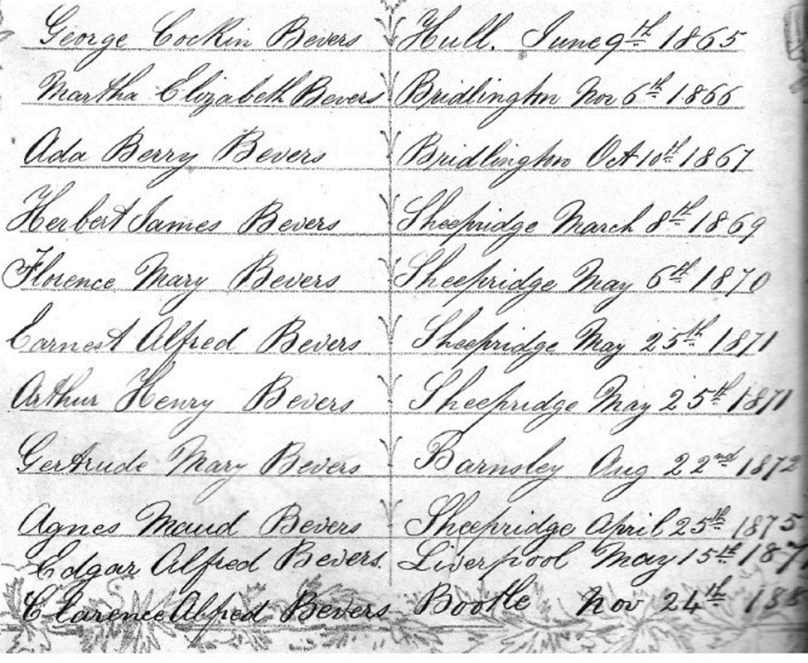 George Cockin Bevers Hull. June 9th 1865
Martha Elizabeth Bevers Bridlington Nov 6th 1866
Ada Berry Bevers Bridlington Oct 10th 1867
Herbert James Bevers Sheepridge March 8th 1869
Florence Mary Bevers Sheepridge May 6th 1870
Earnest Alfred Bevers Sheepridge May 25th 1871
Arthur Henry Bevers Sheepridge May 25th 1871
Gertrude Mary Bevers Barnsley Aug 22nd 1872
Agnes Maud Bevers Sheepridge April 25th 1875
Edgar Alfred Bevers. Liverpool May 15th
Clarence Alfred Bevers Bootle Nov 24th